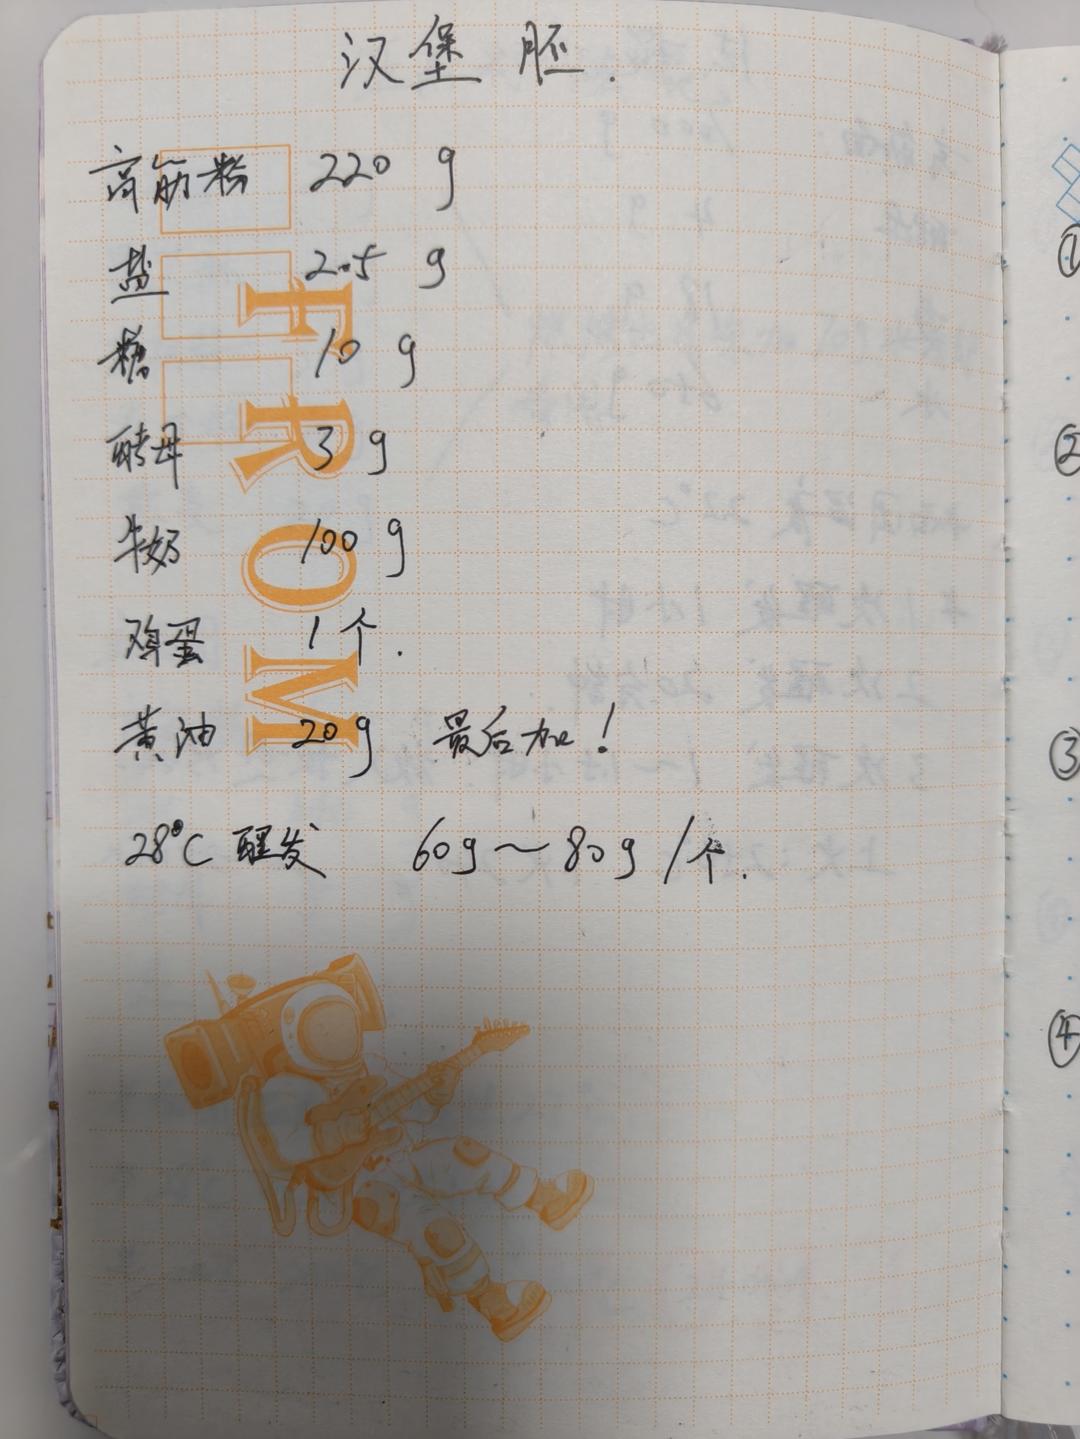 汉堡胚.
高筋粉 220 g
盐 2.5 g
糖 10 g
酵母 3 g
牛奶 100 g
鸡蛋 1个.
黄油 20g 最后加!
28°C 醒发 60g～80g /个.
FROM
①
②
③
④